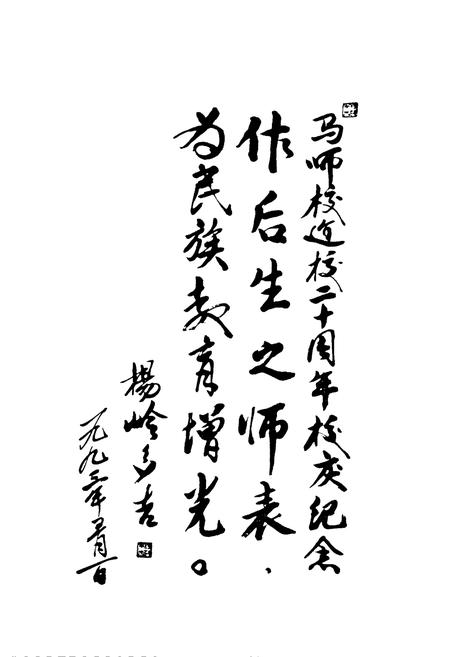 马师校建校二十周年校庆纪念
作后生之师表、
为民族教育增光。
楊岭多吉
一九九三年五月一日